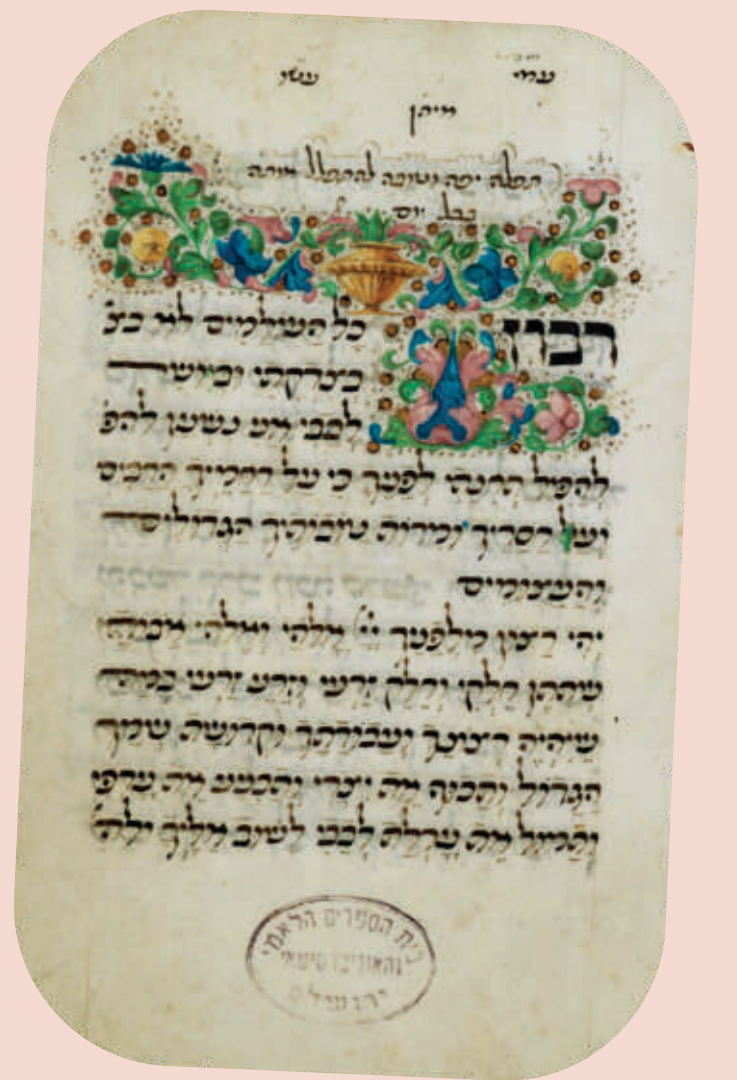 עמי עשו
מיתן
תפלה יפה וטובה להתפלל אותה
בכל יום
רבון כל העולמים לא בצ
בצדקתי וביושר
לבבי אני נשען להפ
להפיל תחנתי לפניך כי על רחמיך הרבים
ועל חסדיך ומרוב טובותיך הגדולים
והעצומים
יהי רצון מלפניך אלהי ואלהי אבותי
שתתן חלקי וחלק זרעי וזרע זרעי
שיהיה רצונך ועבודתך וקדושת שמך
הגדול ותכוף את יצרי ותכניע את ערפי
ותמול את ערלת לבבי לשוב אליך
בית הספרים הלאמי
והאוניברסיטאי
ירושלים